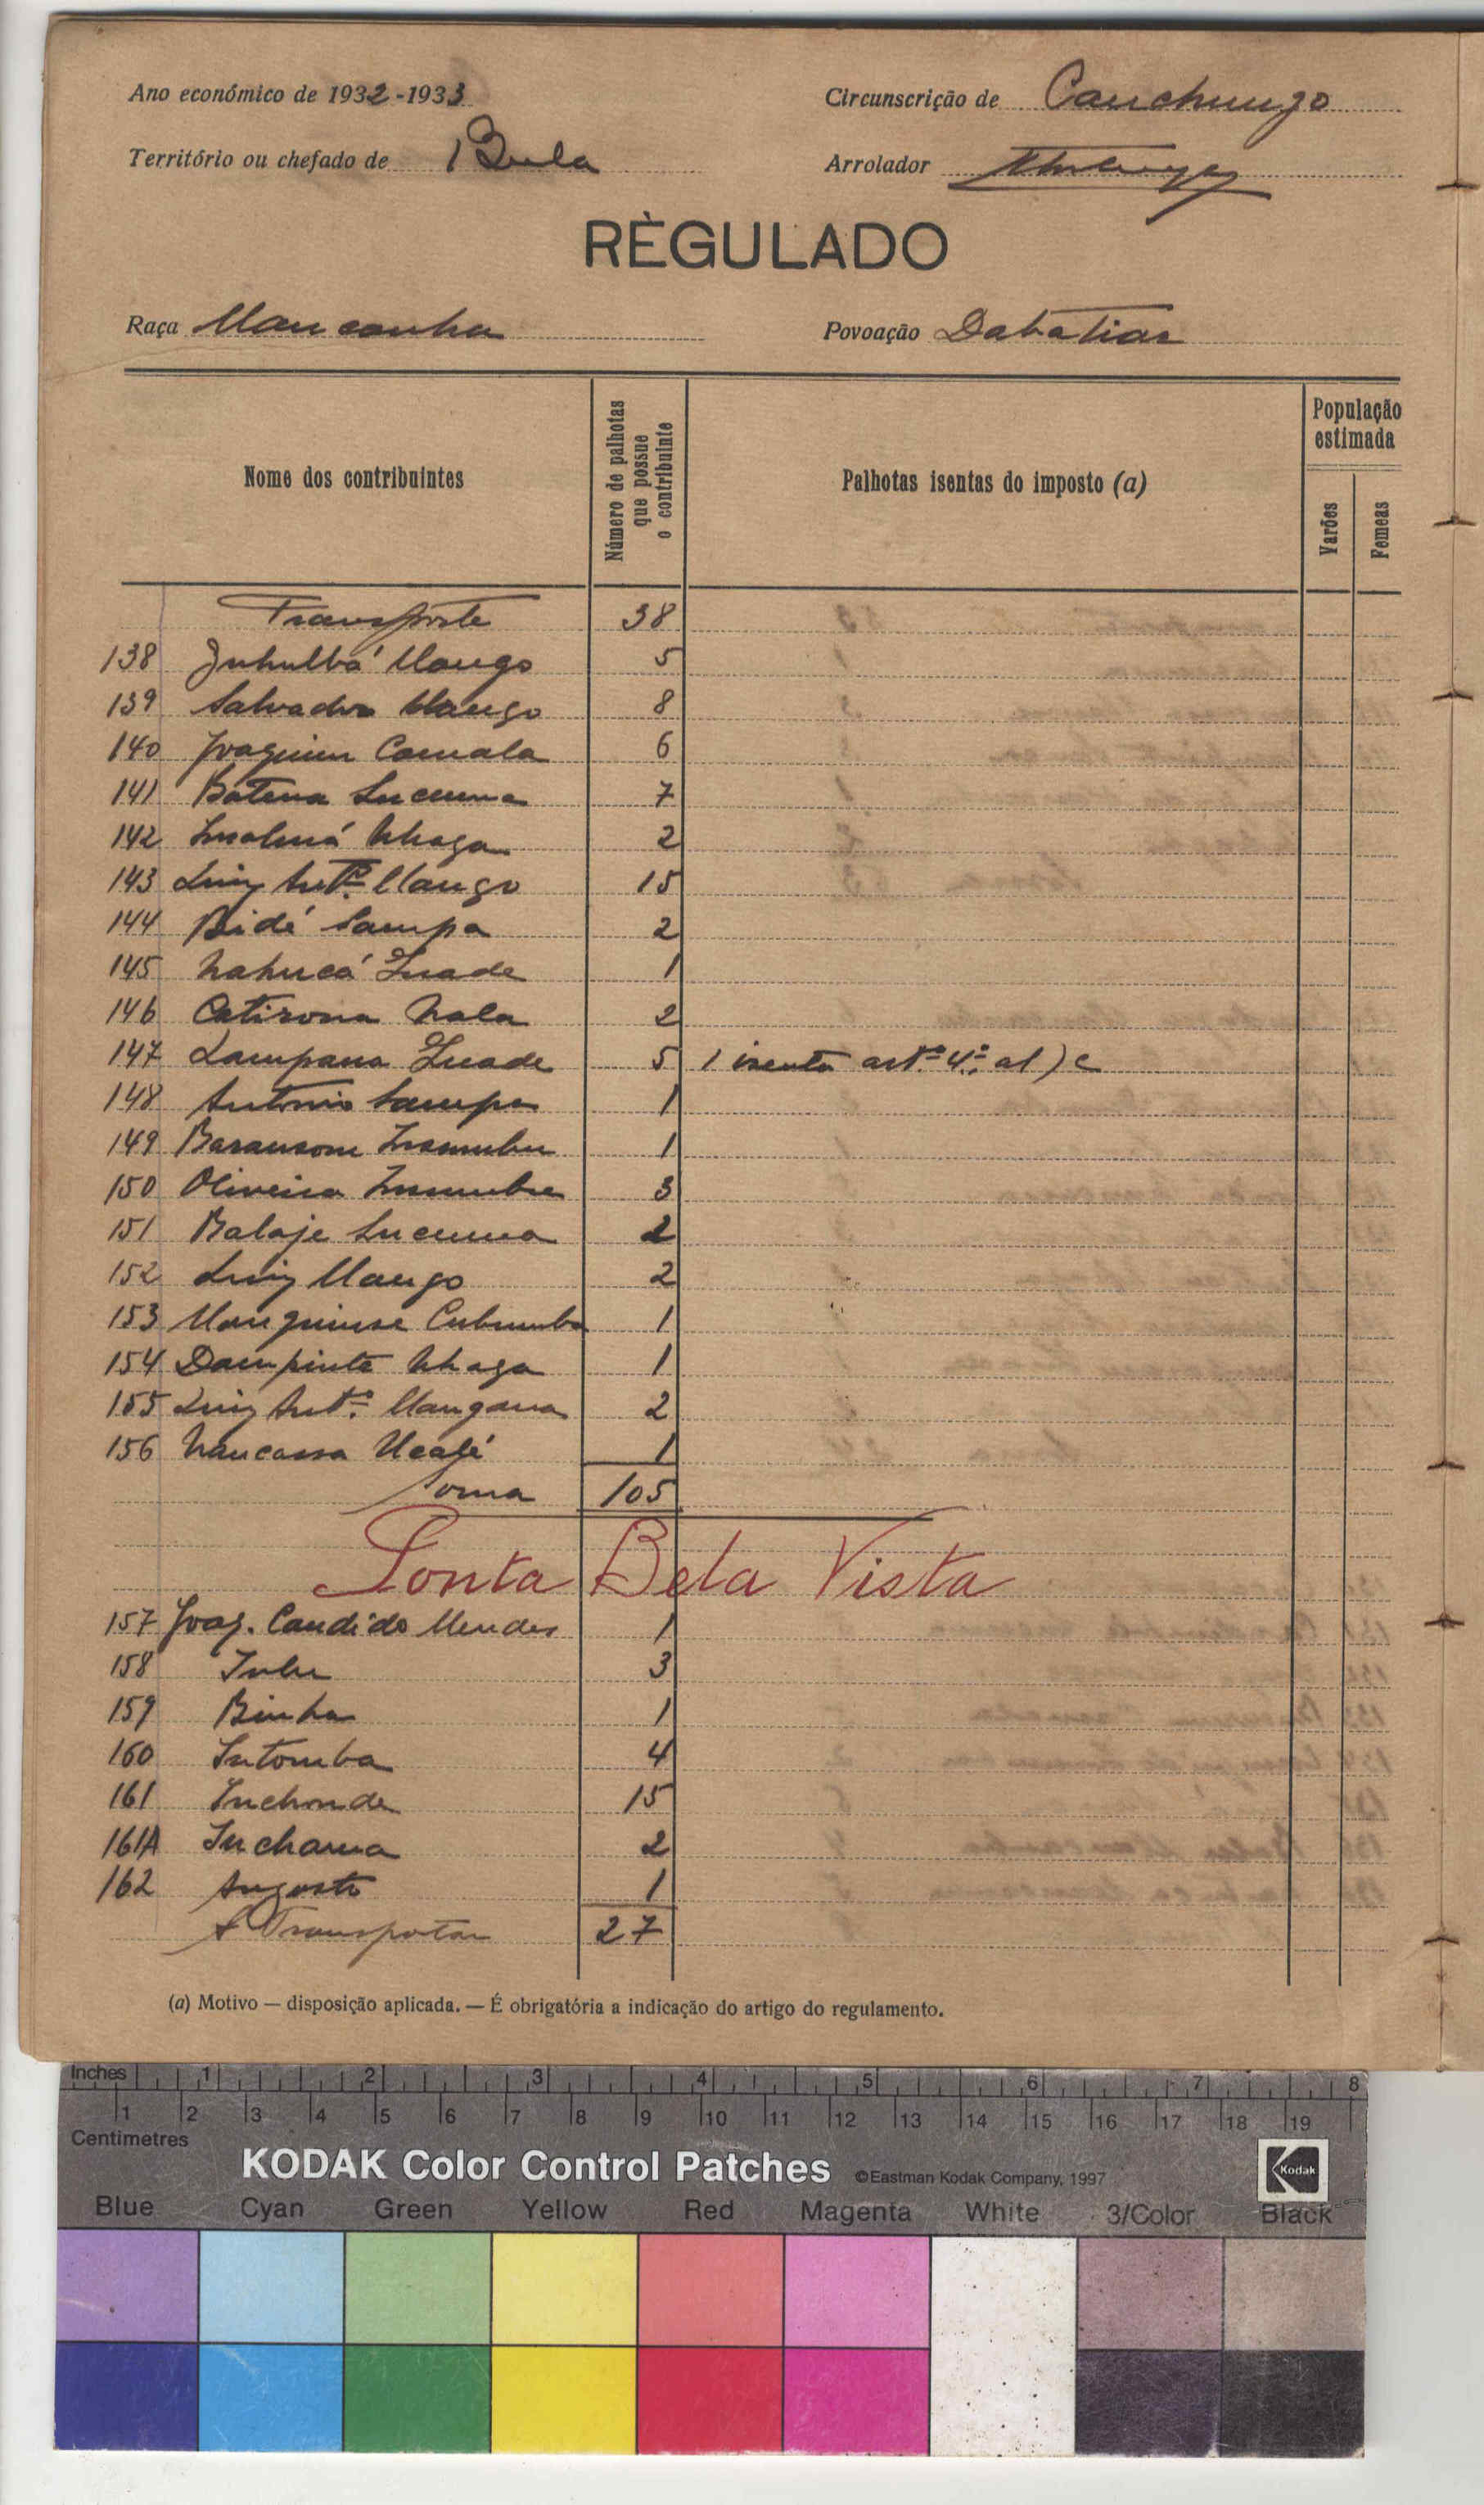 Ano económico de 1932-1933
Circunscrição de Canchungo
Território ou chefado de Bula
Arrolador
RÈGULADO
Raça Mancanha
Povoação Dabatiar
Nome dos contribuintes
Número de palhotas que possue o contribuinte
Palhotas isentas do imposto (a)
População estimada
Varões
Femeas
Transporte 38
138 Mango 5
139 Salvador Mango 8
140 Joaquim Camala 6
141 Batena 7
142 2
143 Luiz Antº. Mango 15
144 Bidé Sampa 2
145 1
146 Catirona Nala 2
147 Lampana 5 1 isenta artº. 4º. al) c
148 Antonio Sampa 1
149 1
150 Oliveira 3
151 Balaje 2
152 Luiz Mango 2
153 1
154 1
155 Luiz Antº. Mangana 2
156 Nancassa 1
Soma 105
Ponta Bela Vista
157 Joaq. Candido Mendes 1
158 3
159 Binha 1
160 Intomba 4
161 Inchonde 15
161A Inchama 2
162 Augusto 1
A Transportar 27
(a) Motivo — disposição aplicada. — É obrigatória a indicação do artigo do regulamento.
Inches 1 2 3 4 5 6 7 8
1 2 3 4 5 6 7 8 9 10 11 12 13 14 15 16 17 18 19
Centimetres
KODAK Color Control Patches ©Eastman Kodak Company, 1997 Kodak
Blue Cyan Green Yellow Red Magenta White 3/Color Black